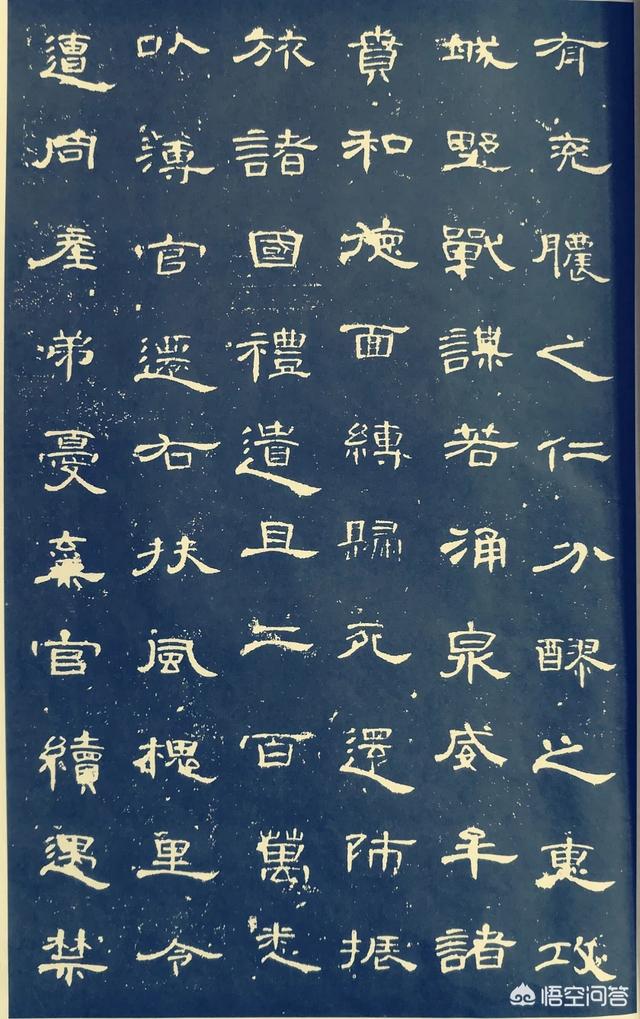 有兖膿之仁分醪之惠攻
城野戰謀若涌泉威牟諸
賁和德面縛歸死還師振
旅諸國禮遺且二百萬悉
以薄官遷右扶風槐里令
遭同產弟憂棄官續遇禁
悟空问答